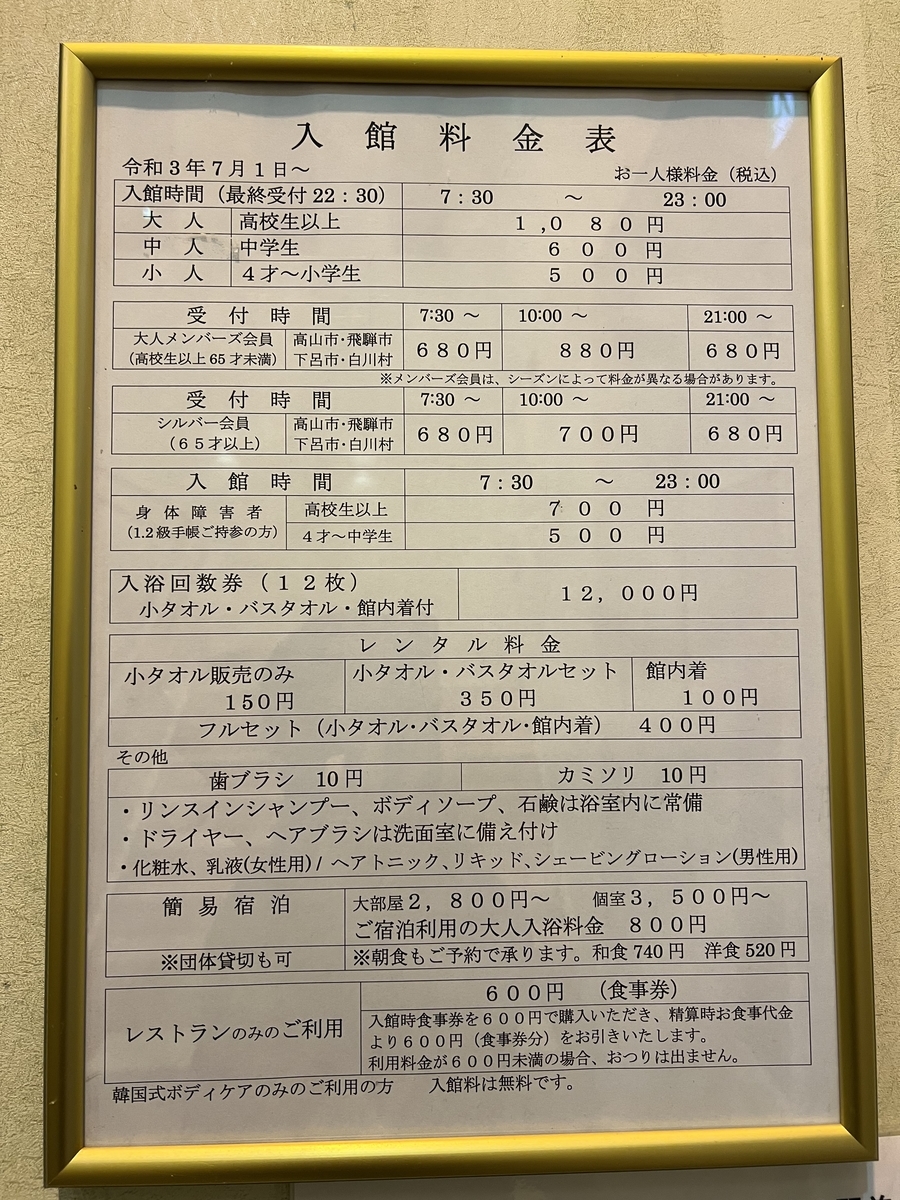 入館料金表
令和3年7月1日～ お一人様料金（税込）
入館時間（最終受付22：30） 7：30 ～ 23：00
大人 高校生以上 1,080円
中人 中学生 600円
小人 4才～小学生 500円
受付時間 7:30 ～ 10:00 ～ 21:00 ～
大人メンバーズ会員 高山市・飛騨市 680円 880円 680円
（高校生以上65才未満） 下呂市・白川村
※メンバーズ会員は、シーズンによって料金が異なる場合があります。
受付時間 7:30 ～ 10:00 ～ 21:00 ～
シルバー会員 高山市・飛騨市 680円 700円 680円
（65才以上） 下呂市・白川村
入館時間 7：30 ～ 23：00
身体障害者 高校生以上 700円
（1.2級手帳ご持参の方） 4才～中学生 500円
入浴回数券（12枚） 12，000円
小タオル・バスタオル・館内着付
レンタル料金
小タオル販売のみ 小タオル・バスタオルセット 館内着
150円 350円 100円
フルセット（小タオル・バスタオル・館内着） 400円
その他
歯ブラシ 10円 カミソリ 10円
・リンスインシャンプー、ボディソープ、石鹸は浴室内に常備
・ドライヤー、ヘアブラシは洗面室に備え付け
・化粧水、乳液(女性用) / ヘアトニック、リキッド、シェービングローション(男性用)
簡易宿泊 大部屋2，800円～ 個室3，500円～
ご宿泊利用の大人入浴料金 800円
※団体貸切も可 ※朝食もご予約で承ります。和食740円 洋食520円
レストランのみのご利用 600円 （食事券）
入館時食事券を600円で購入いただき、精算時お食事代金
より600円（食事券分）をお引きいたします。
利用料金が600円未満の場合、おつりは出ません。
韓国式ボディケアのみのご利用の方 入館料は無料です。